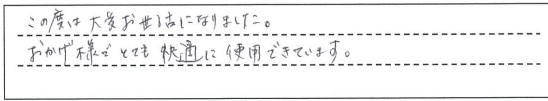 この度は大変お世話になりました。
おかげ様でとても快適に使用できています。